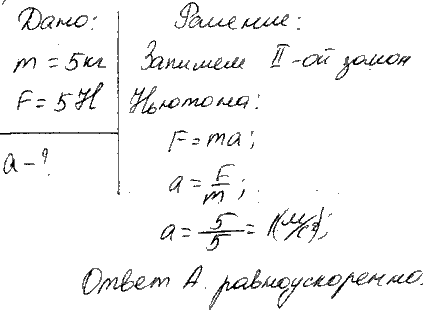 Дано:
m = 5 кг
F = 5 Н
a - ?
Решение:
Запишем II-ой закон
Ньютона:
F = ma;
a = F/m;
a = 5/5 = 1(м/с²);
Ответ А. равноускоренно.